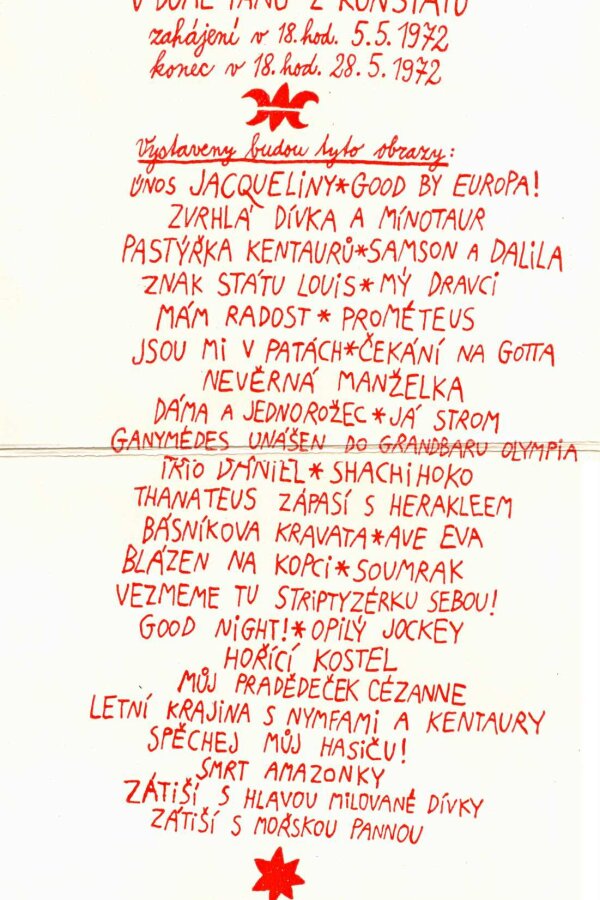 V DOMĚ PÁNŮ Z KUNŠTÁTU
zahájení v 18. hod. 5. 5. 1972
konec v 18. hod. 28. 5. 1972
Vystaveny budou tyto obrazy:
ÚNOS JACQUELINY*GOOD BY EUROPA!
ZVRHLÁ DÍVKA A MÍNOTAUR
PASTÝŘKA KENTAURŮ*SAMSON A DALILA
ZNAK STÁTU LOUIS*MÝ DRAVCI
MÁM RADOST * PROMÉTEUS
JSOU MI V PATÁCH*ČEKÁNÍ NA GOTTA
NEVĚRNÁ MANŽELKA
DÁMA A JEDNOROŽEC*JÁ STROM
GANYMÉDES UNÁŠEN DO GRANDBARU OLYMPIA
TRIO DANIEL*SHACHIHOKO
THANATEUS ZÁPASÍ S HERAKLEEM
BÁSNÍKOVA KRAVATA*AVE EVA
BLÁZEN NA KOPCI*SOUMRAK
VEZMEME TU STRIPTYZÉRKU SEBOU!
GOOD NIGHT!*OPILÝ JOCKEY
HOŘÍCÍ KOSTEL
MŮJ PRADĚDEČEK CÉZANNE
LETNÍ KRAJINA S NYMFAMI A KENTAURY
SPĚCHEJ MŮJ HASIČU!
SMRT AMAZONKY
ZÁTIŠÍ S HLAVOU MILOVANÉ DÍVKY
ZÁTIŠÍ S MOŘSKOU PANNOU